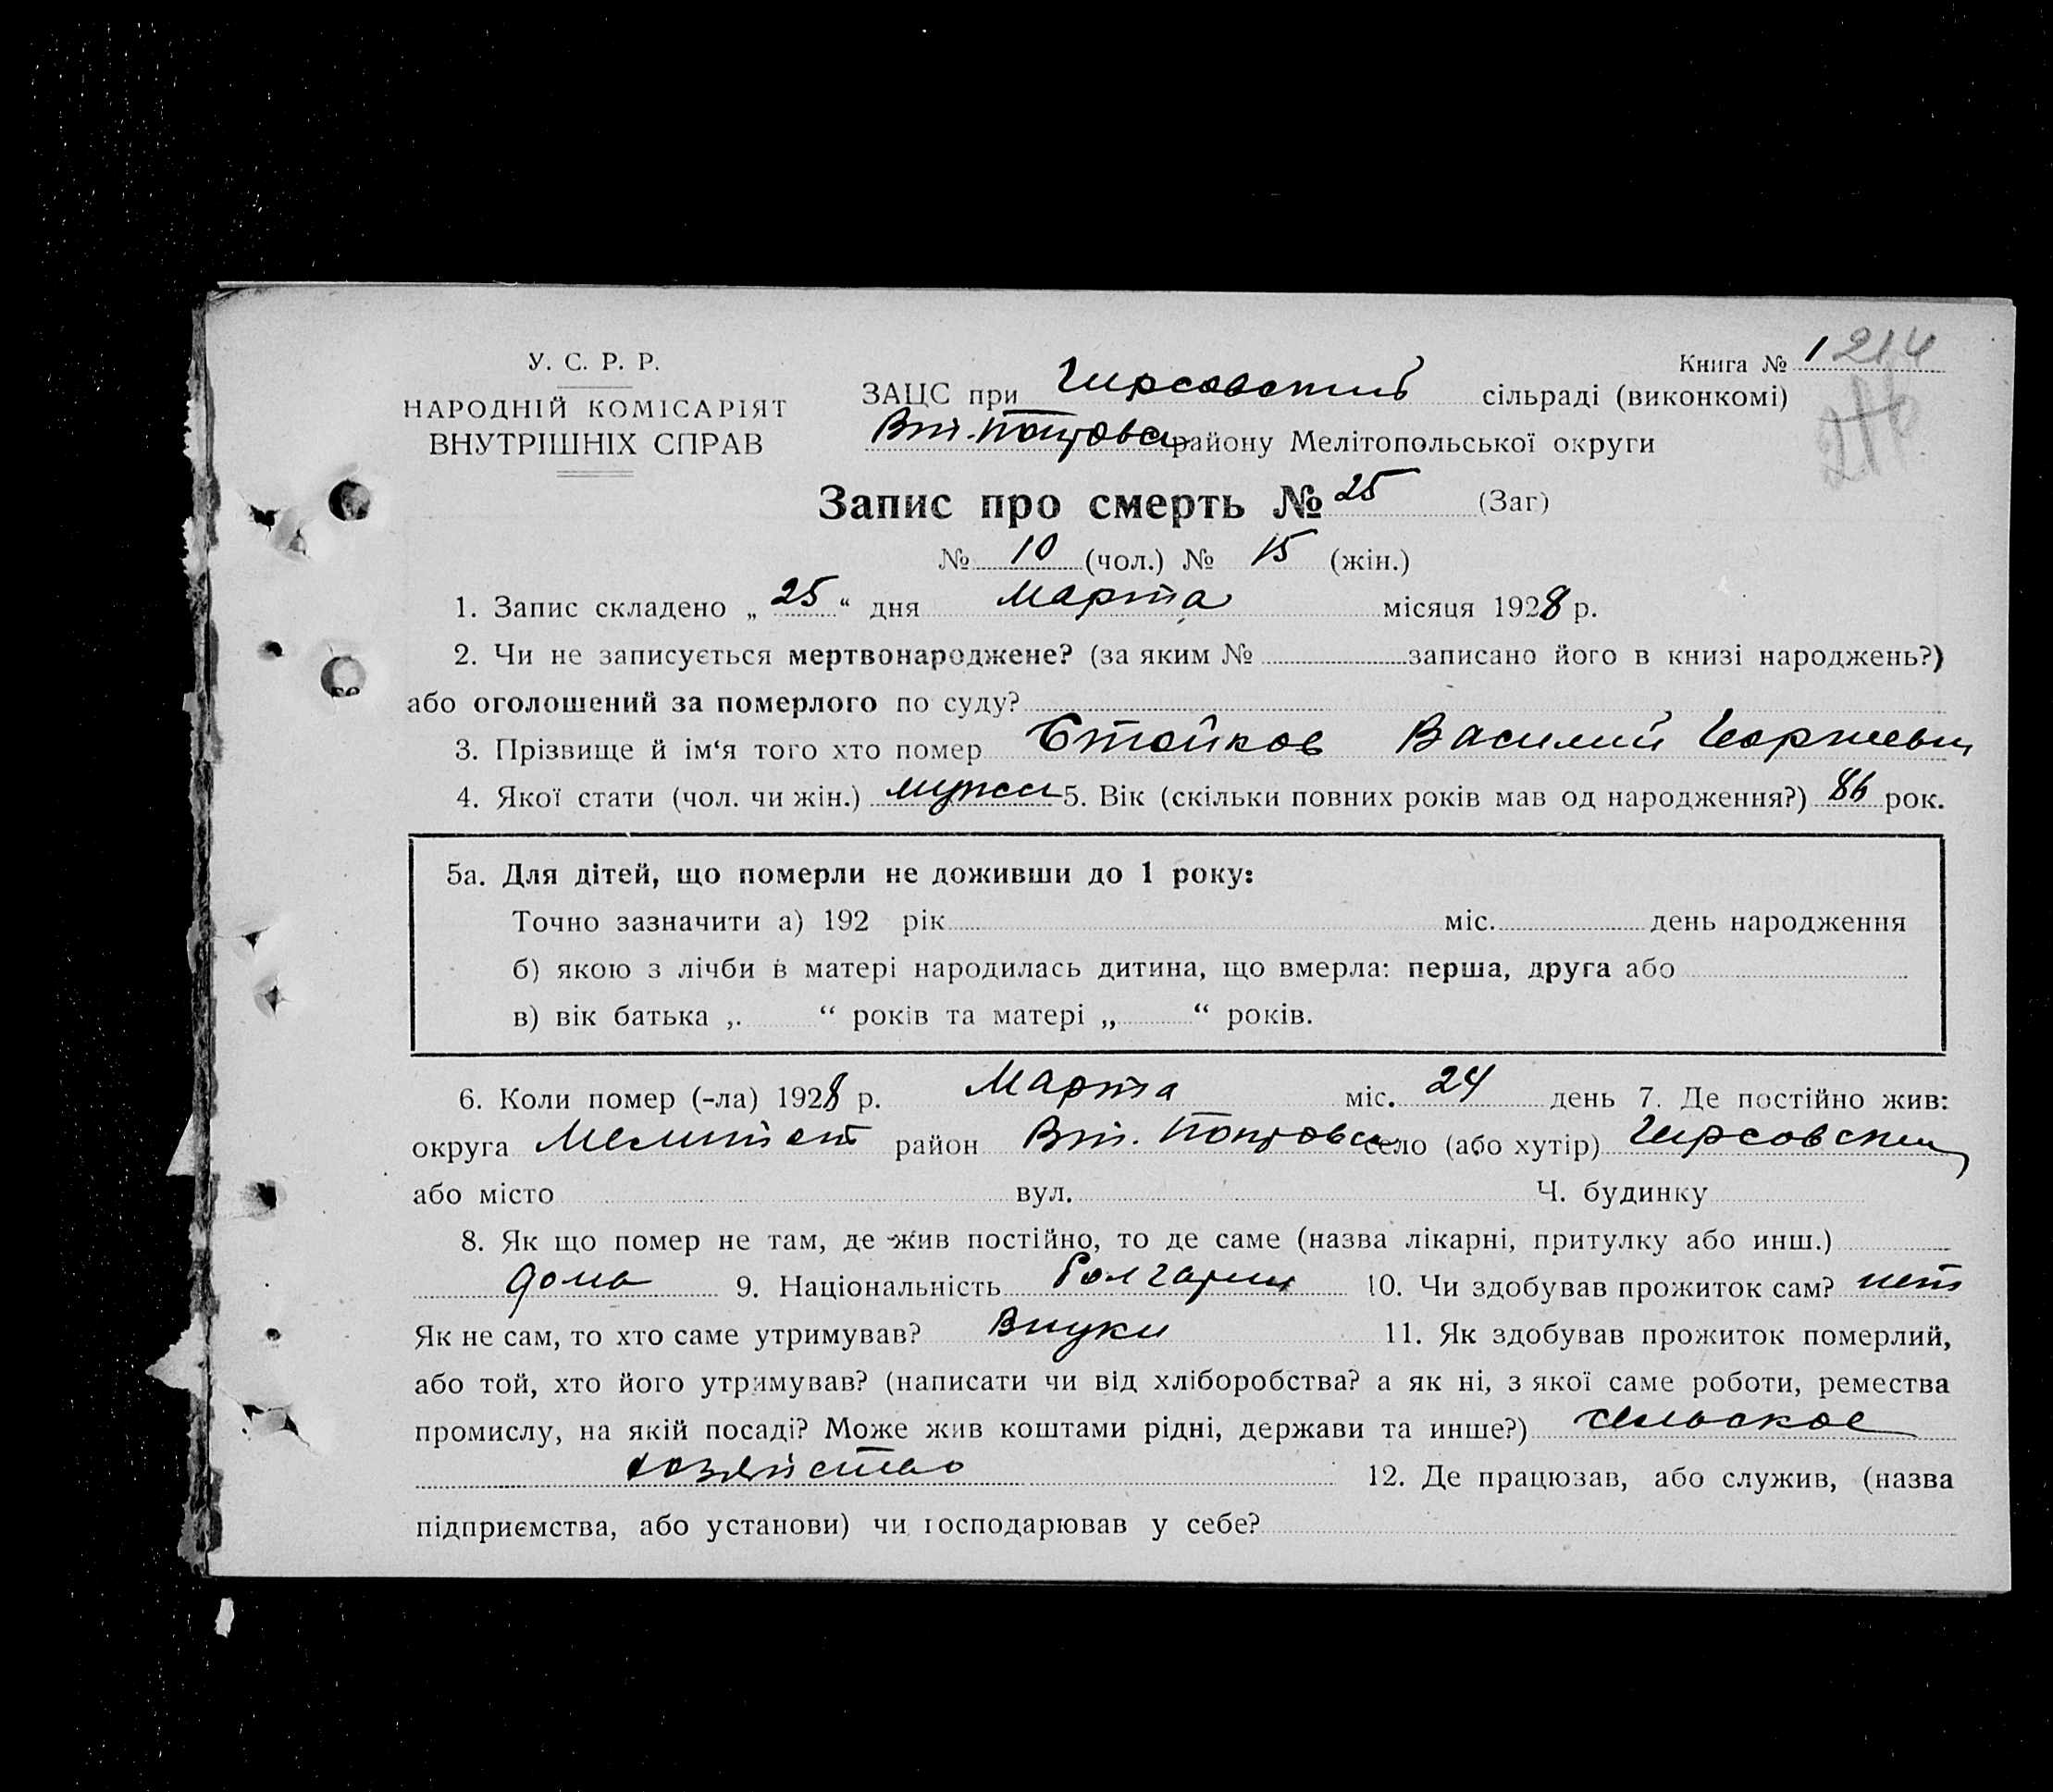 У. С. Р. Р.
НАРОДНІЙ КОМІСАРІЯТ
ВНУТРІШНІХ СПРАВ
Книга № 1 214
ЗАЦС при Гирсовский сільраді (виконкомі)
району Мелітопольської округи
Запис про смерть № 25 (Заг)
№ 10 (чол.) № 15 (жін.)
1. Запис складено „ 25 “ дня Марта місяця 1928 р.
2. Чи не записується мертвонароджене? (за яким № записано його в книзі народжень?)
або оголошений за померлого по суду?
3. Прізвище й ім‘я того хто помер Стойков Василий
4. Якої стати (чол. чи жін.) мужск 5. Вік (скільки повних років мав од народження?) 86 рок.
5а. Для дітей, що померли не доживши до 1 року:
Точно зазначити а) 192 рік міс. день народження
б) якою з лічби в матері народилась дитина, що вмерла: перша, друга або
в) вік батька „ “ років та матері „ “ років.
6. Коли помер (-ла) 1928 р. Марта міс. 24 день 7. Де постійно жив:
округа район село (або хутір) Гирсовский
або місто вул. Ч. будинку
8. Як що помер не там, де жив постійно, то де саме (назва лікарні, притулку або инш.)
дома 9. Національність Болгарин 10. Чи здобував прожиток сам? нет
Як не сам, то хто саме утримував? Внуки 11. Як здобував прожиток померлий,
або той, хто його утримував? (написати чи від хліборобства? а як ні, з якої саме роботи, ремества
промислу, на якій посаді? Може жив коштами рідні, держави та инше?) сельское
хозяйство 12. Де працював, або служив, (назва
підприємства, або установи) чи господарював у себе?